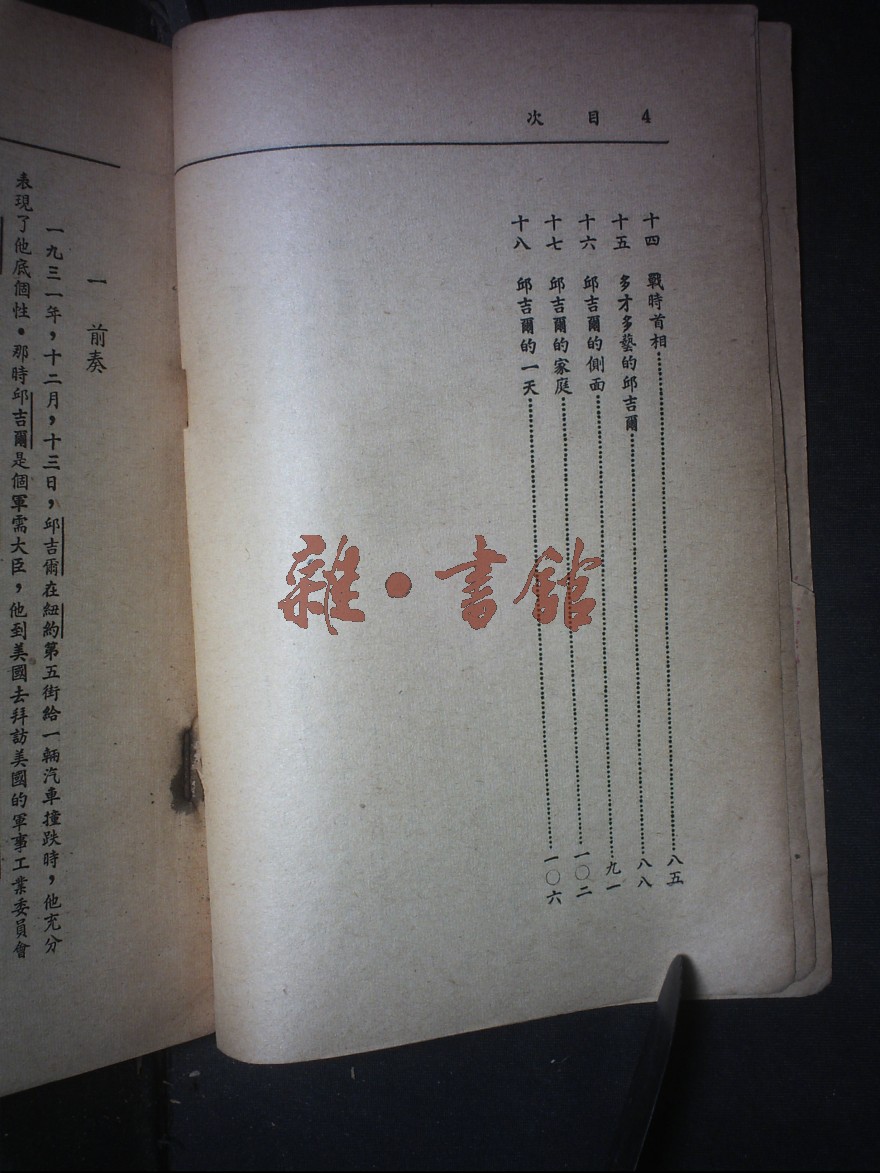 4 目次
十四 戰時首相……八五
十五 多才多藝的邱吉爾……八八
十六 邱吉爾的側面……九一
十七 邱吉爾的家庭……一〇二
十八 邱吉爾的一天……一〇六
雜·書館
一 前奏
一九三一年，十二月，十三日，邱吉爾在紐約第五街給一輛汽車撞跌時，他充分
表現了他底個性。那時邱吉爾是個軍需大臣，他到美國去拜訪美國的軍事工業委員會